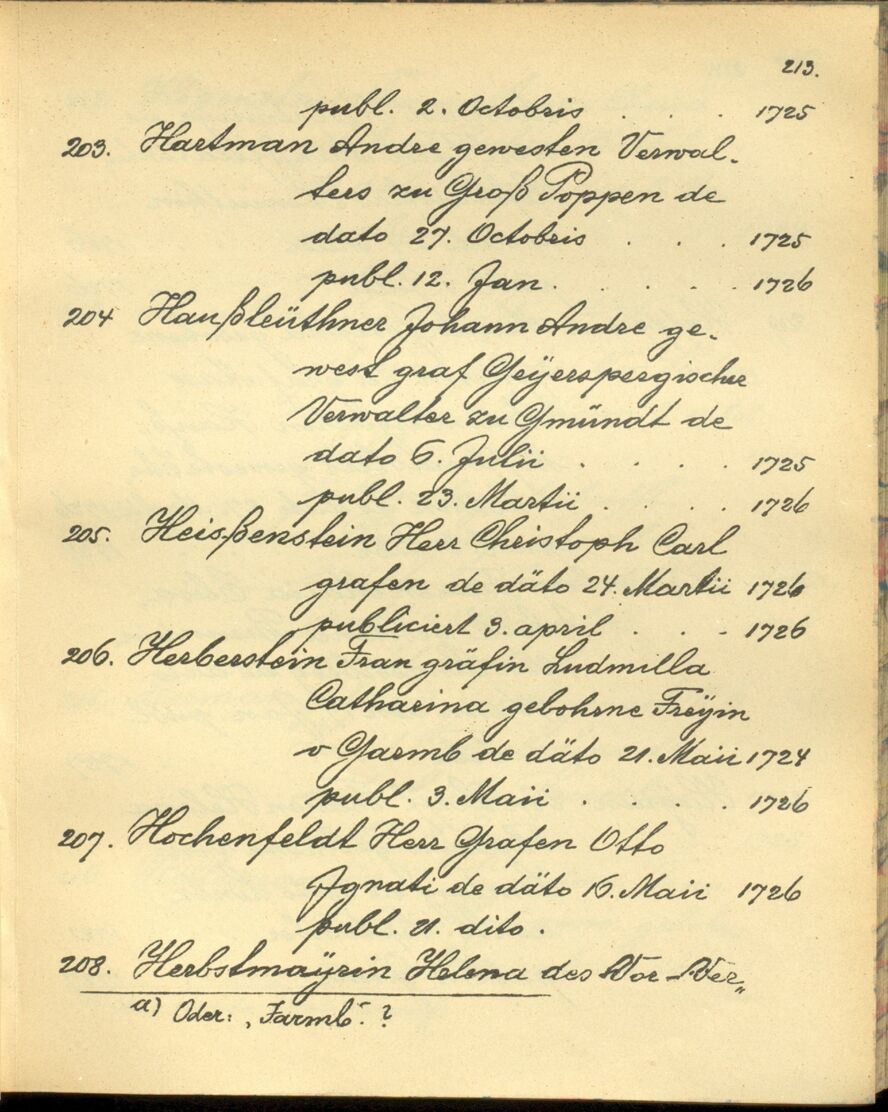 213.
publ. 2. Octobris . . . 1725
203. Hartman Andre gewesten Verwal-
ters zu Groß Poppen de
dato 27. Octobris . . . 1725
publ. 12. Jan. . . . . 1726
204 Haußleüthner Johann Andre ge-
west graf Geÿerspergischer
Verwalter zu Gmündt de
dato 6. Julii . . . . 1725
publ. 23. Martii . . . . 1726
205. Heisßenstein Herr Christoph Carl
grafen de däto 24. Martii 1726
publiciert 3. april . . . 1726
206. Herberstein Frau gräfin Ludmilla
Catharina gebohrne Freÿin
v Garmb de däto 21. Maii 1724
publ. 3. Maii . . . . 1726
207. Hochenfeldt Herr Grafen Otto
Ignati de däto 16. Maii 1726
publ. 21. dito .
208. Herbstmaÿrin Helena des Vor-Ver„
a) Oder: „Farmb“ ?